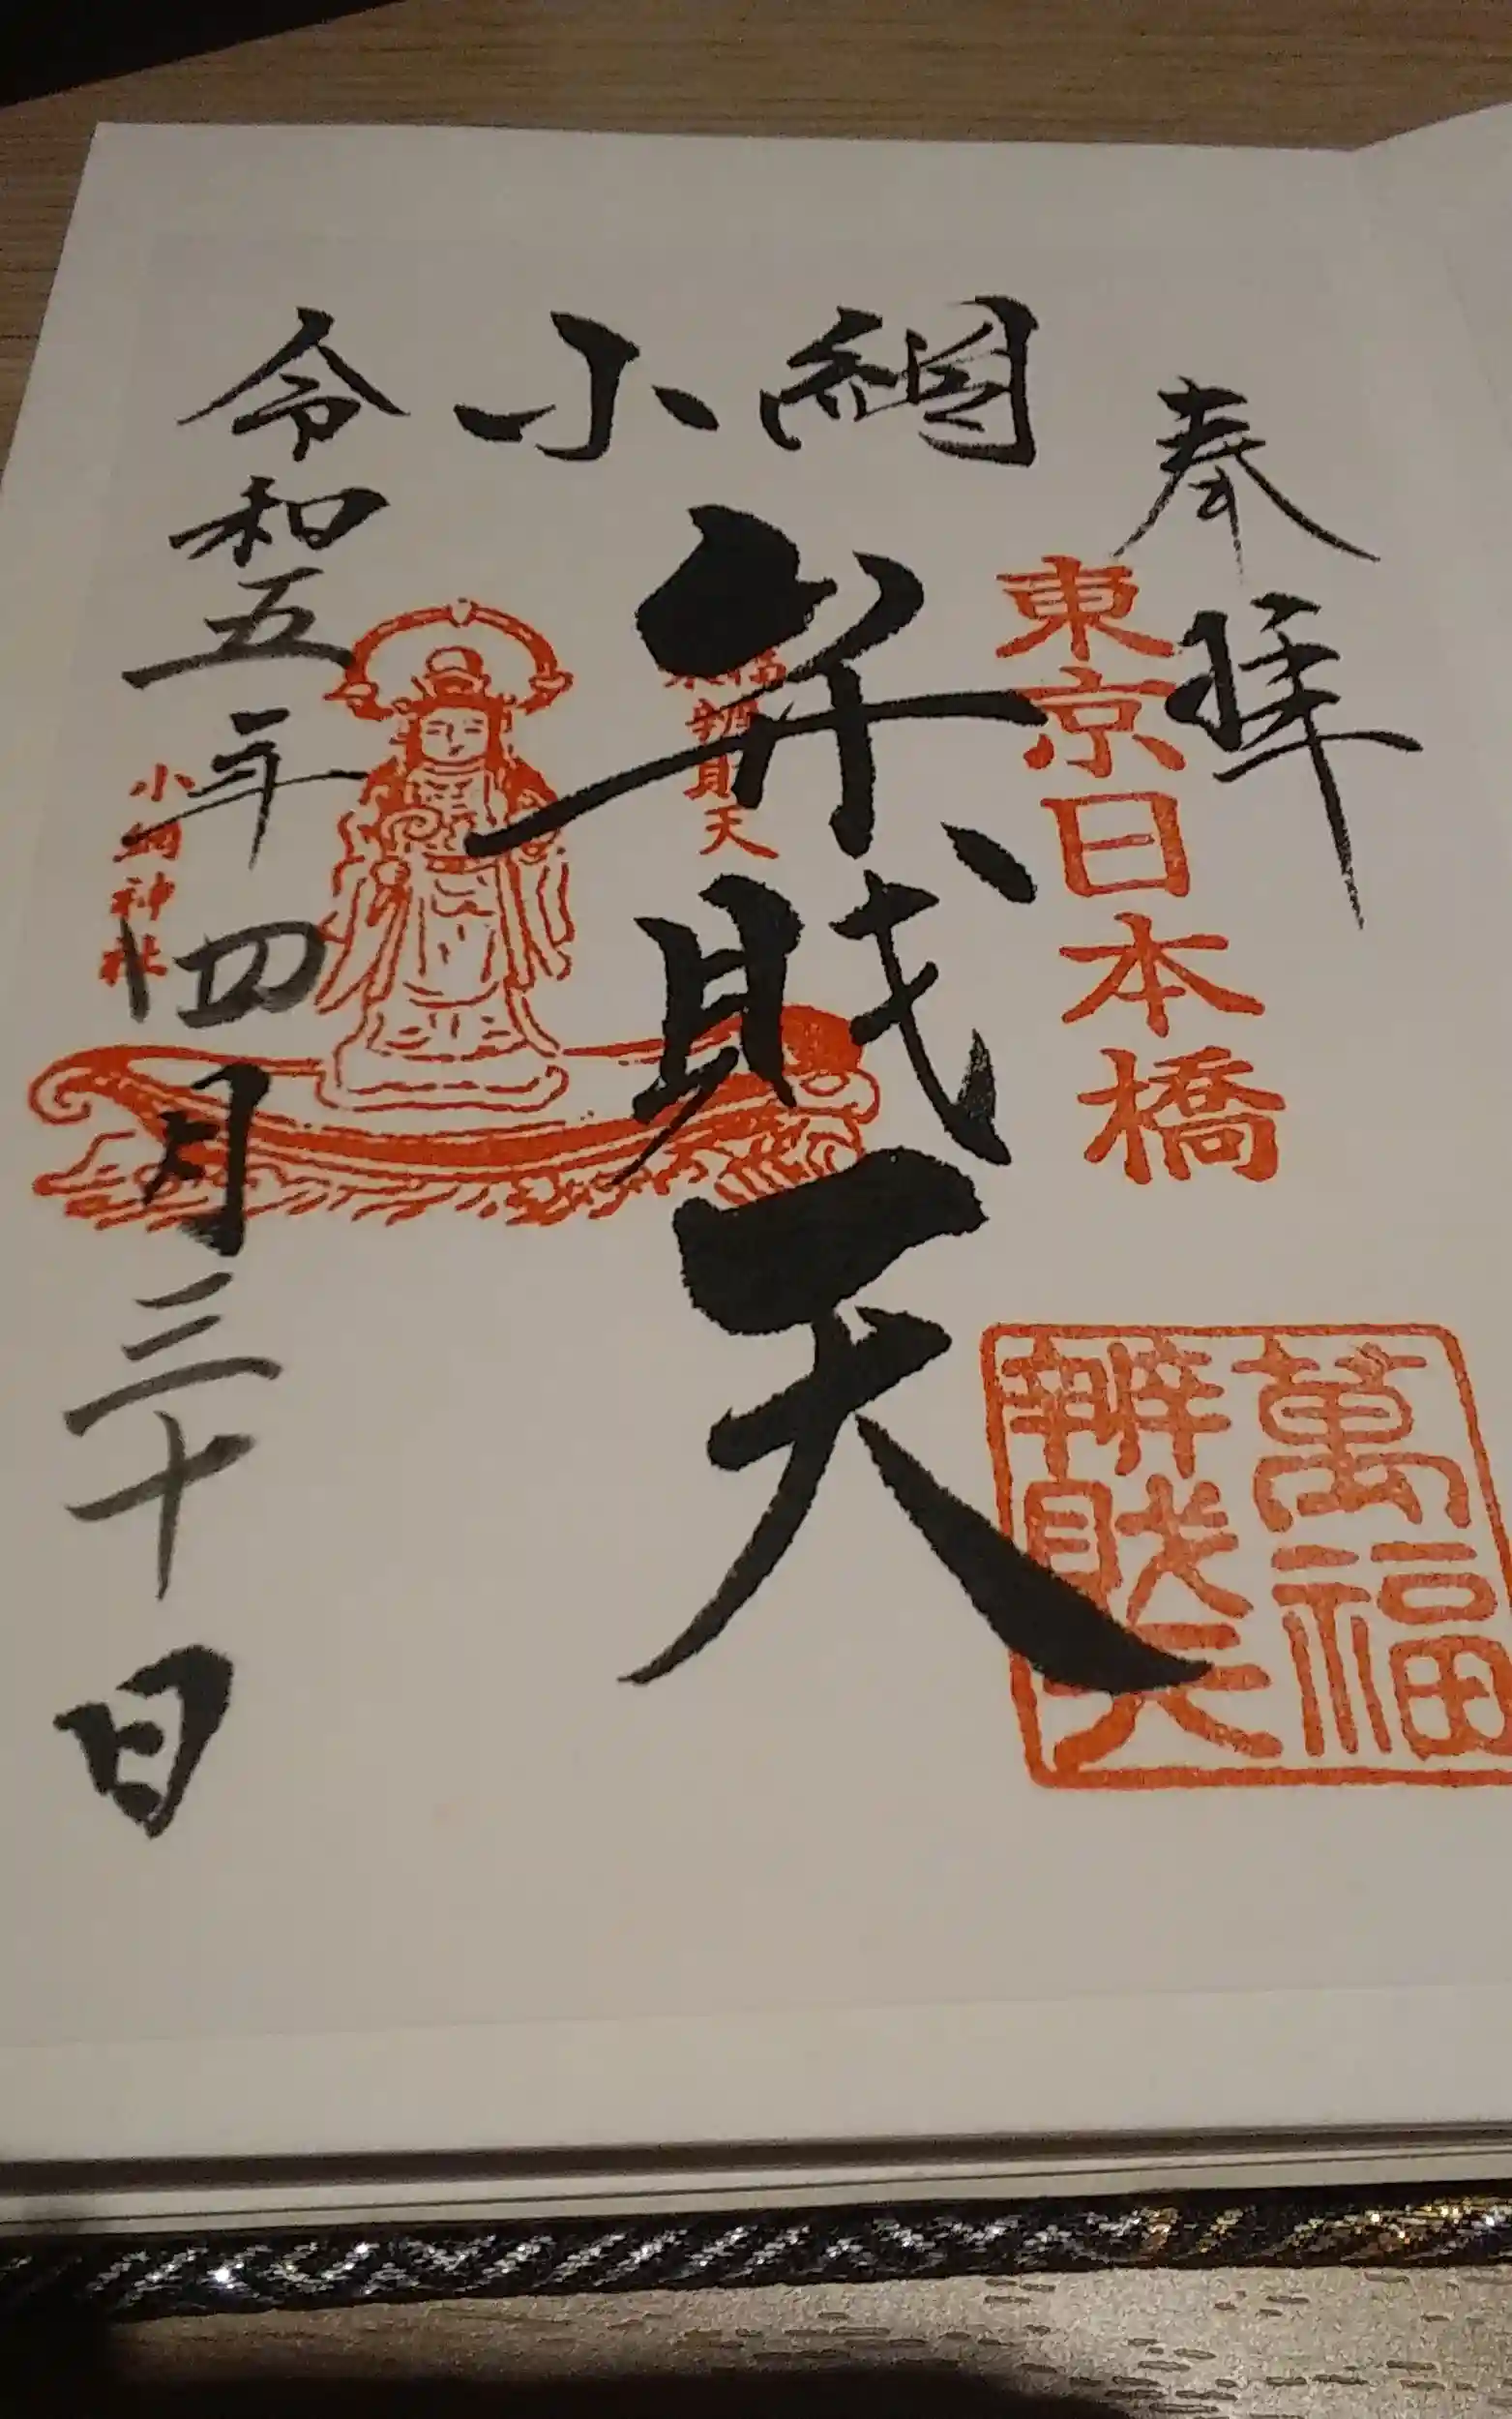 奉拝
東京日本橋
萬福
辨財天
小網
弁財天
福
辨財天
令和五年四月三十日
小網神社